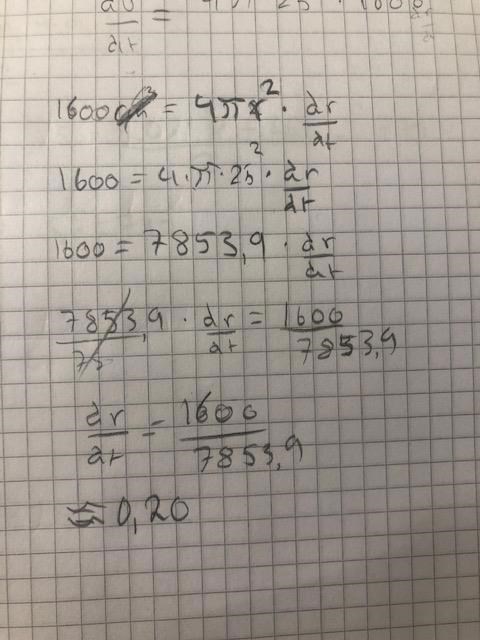 dv/dt = 4π 25² · 1600 dr/dt
1600 = 4πr² · dr/dt
1600 = 4·π·25² · dr/dt
1600 = 7853,9 · dr/dt
7853,9/78 · dr/dt = 1600/7853,9
dr/dt = 1600/7853,9
≈ 0,20